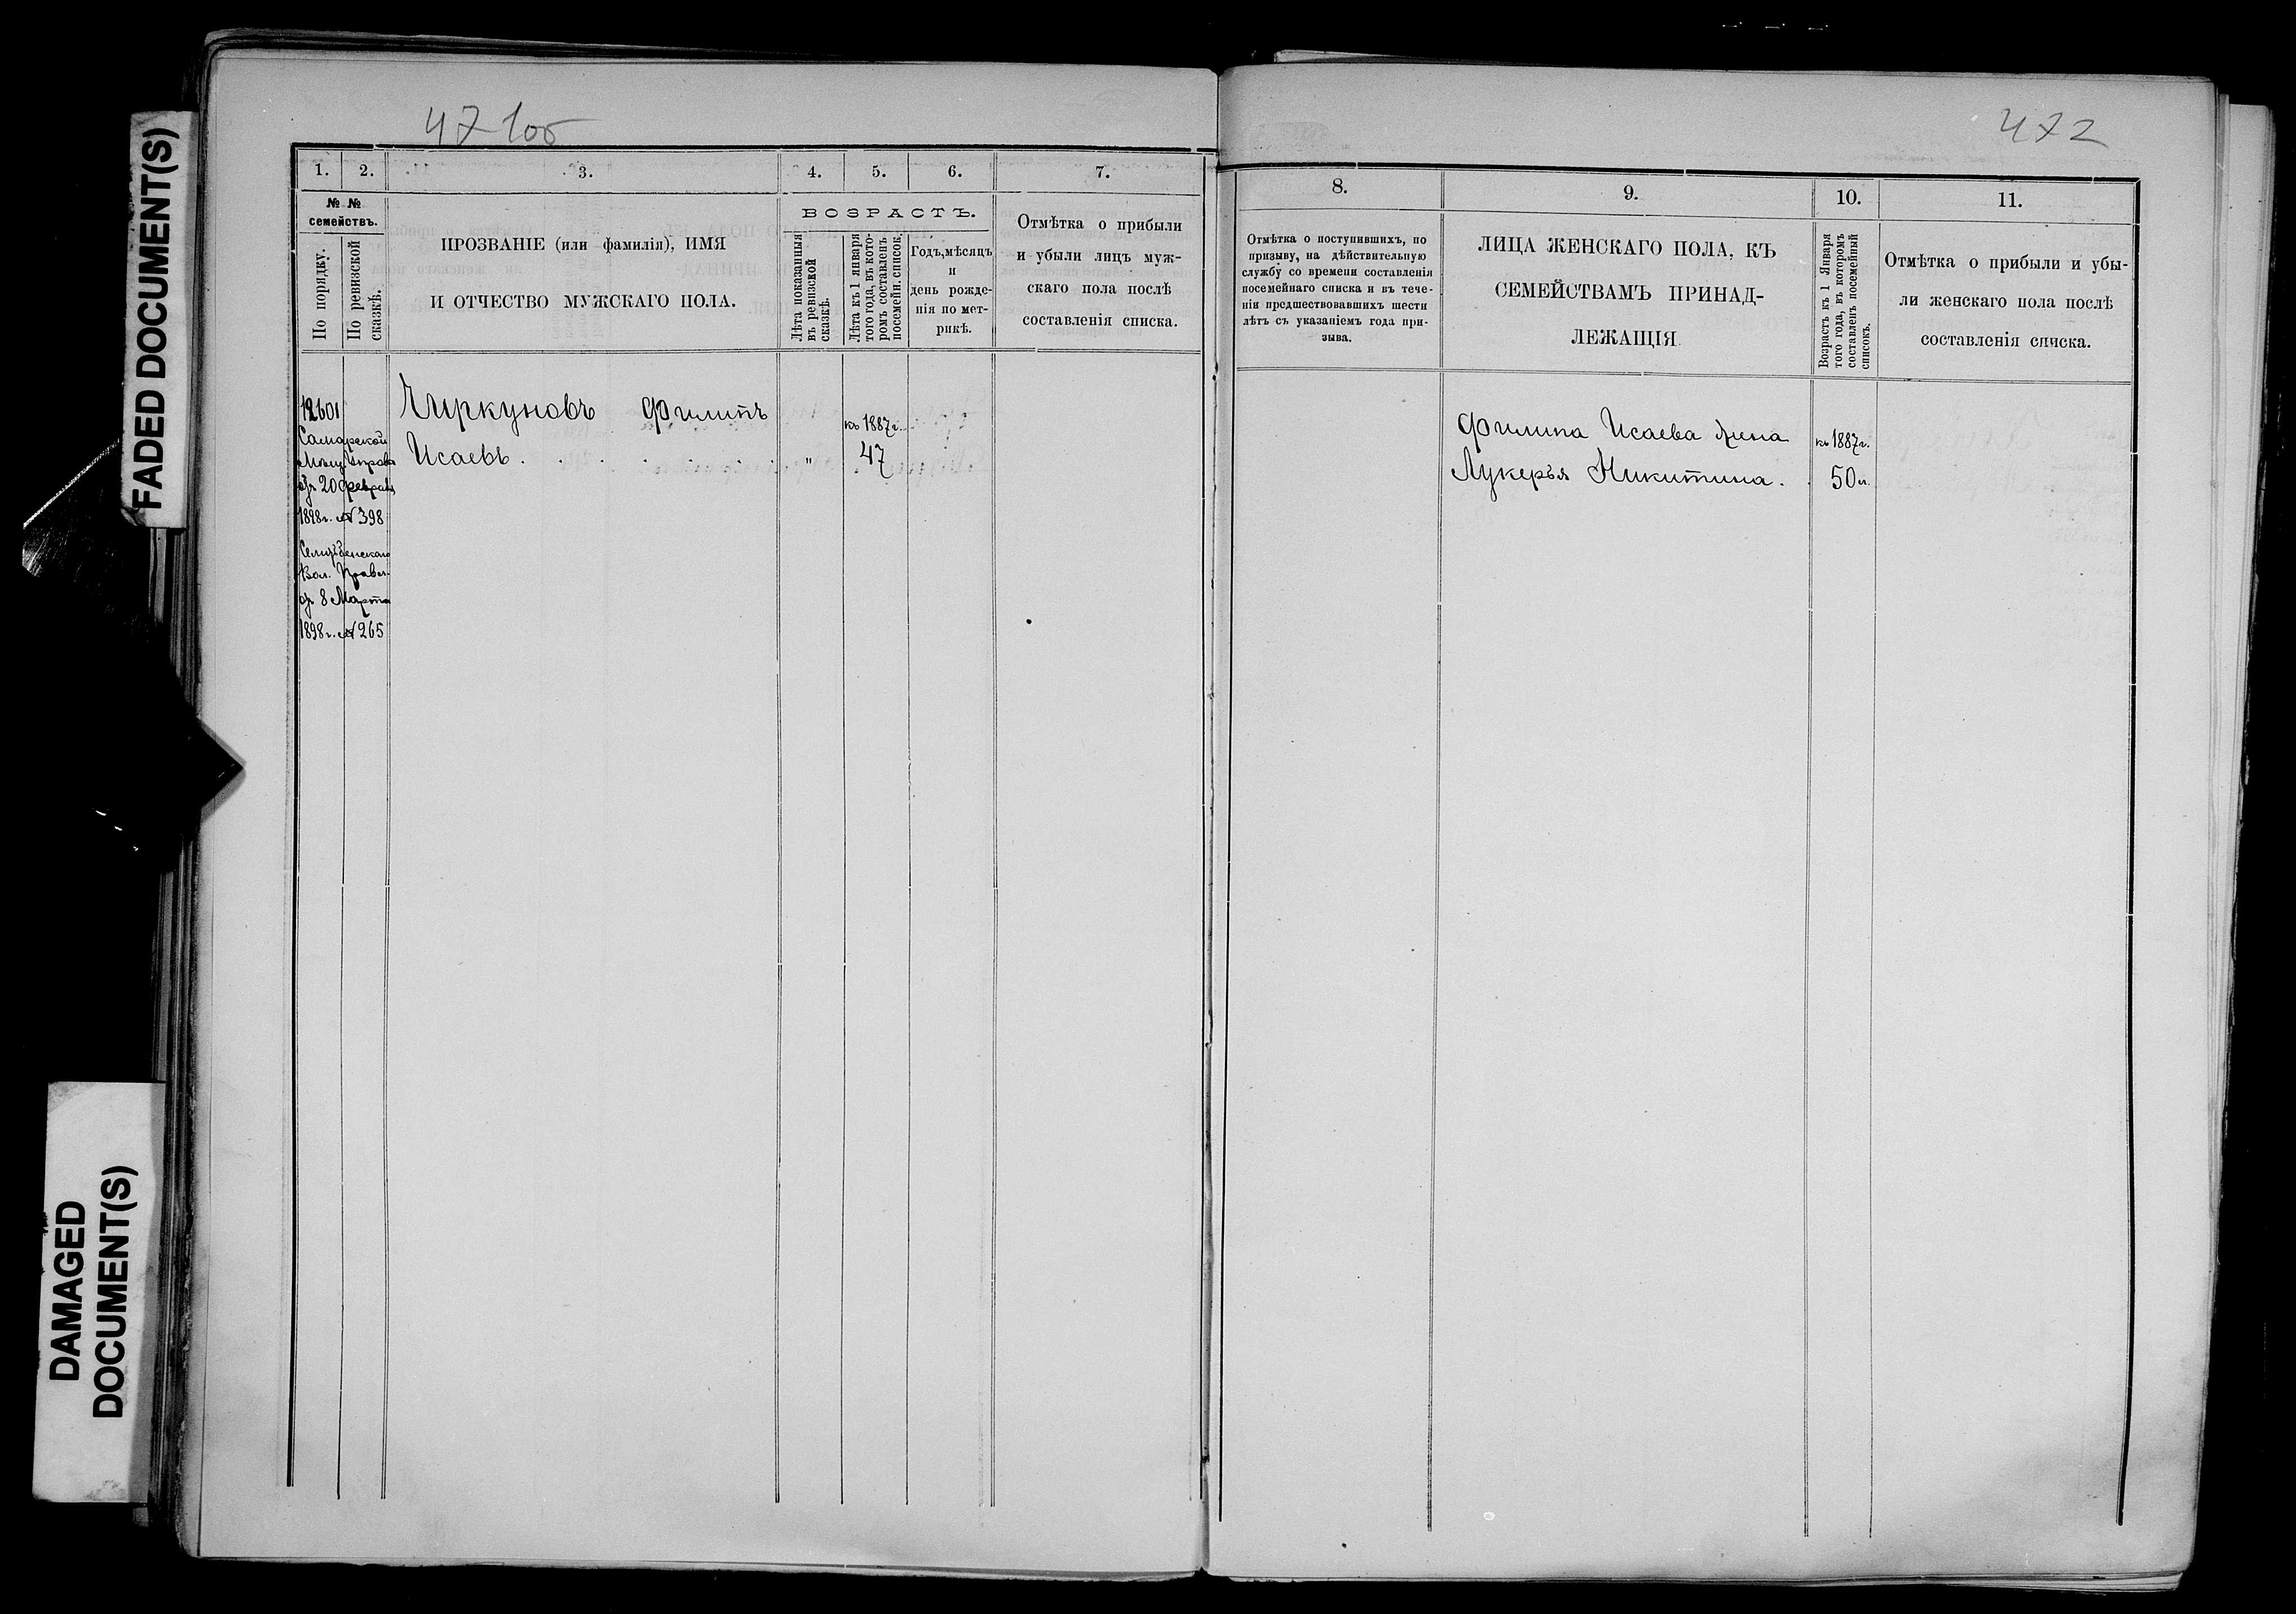 FADED DOCUMENT(S)
DAMAGED
DOCUMENT(S)
471об
1. 2. 3. 4. 5. 6. 7.
№ №
семействъ.
По порядку.
По ревизской
сказкѣ.
ПРОЗВАНІЕ (или фамилія), ИМЯ
И ОТЧЕСТВО МУЖСКАГО ПОЛА.
ВОЗРАСТЪ.
Лѣта показанныя
въ ревизской
сказкѣ.
Лѣта къ 1 января
того года, въ кото-
ромъ составленъ
посемейн. список.
Годъ, мѣсяцъ
и
день рожде-
нія по мет-
рикѣ.
Отмѣтка о прибыли
и убыли лицъ муж-
скаго пола послѣ
составленія списка.
12601
Самарской
Мѣщ. Управы
отъ 20 февраля
1898 г. № 398
Вол. Правл.
отъ 8 Марта
1898 г. № 265
Чиркуновъ Филипъ
Исаевъ . . . . . . . "
къ 1887 г.
47
472
8. 9. 10. 11.
Отмѣтка о поступившихъ, по
призыву, на дѣйствительную
службу со времени составленія
посемейнаго списка и въ тече-
ніи предшествовавшихъ шести
лѣтъ съ указаніемъ года при-
зыва.
ЛИЦА ЖЕНСКАГО ПОЛА, КЪ
СЕМЕЙСТВАМЪ ПРИНАД-
ЛЕЖАЩІЯ
Возрастъ къ 1 Января
того года, въ которомъ
составленъ посемейный
списокъ.
Отмѣтка о прибыли и убы-
ли женскаго пола послѣ
составленія списка.
Филипа Исаева жена
Лукерья Никитина .
къ 1887 г.
50 л.